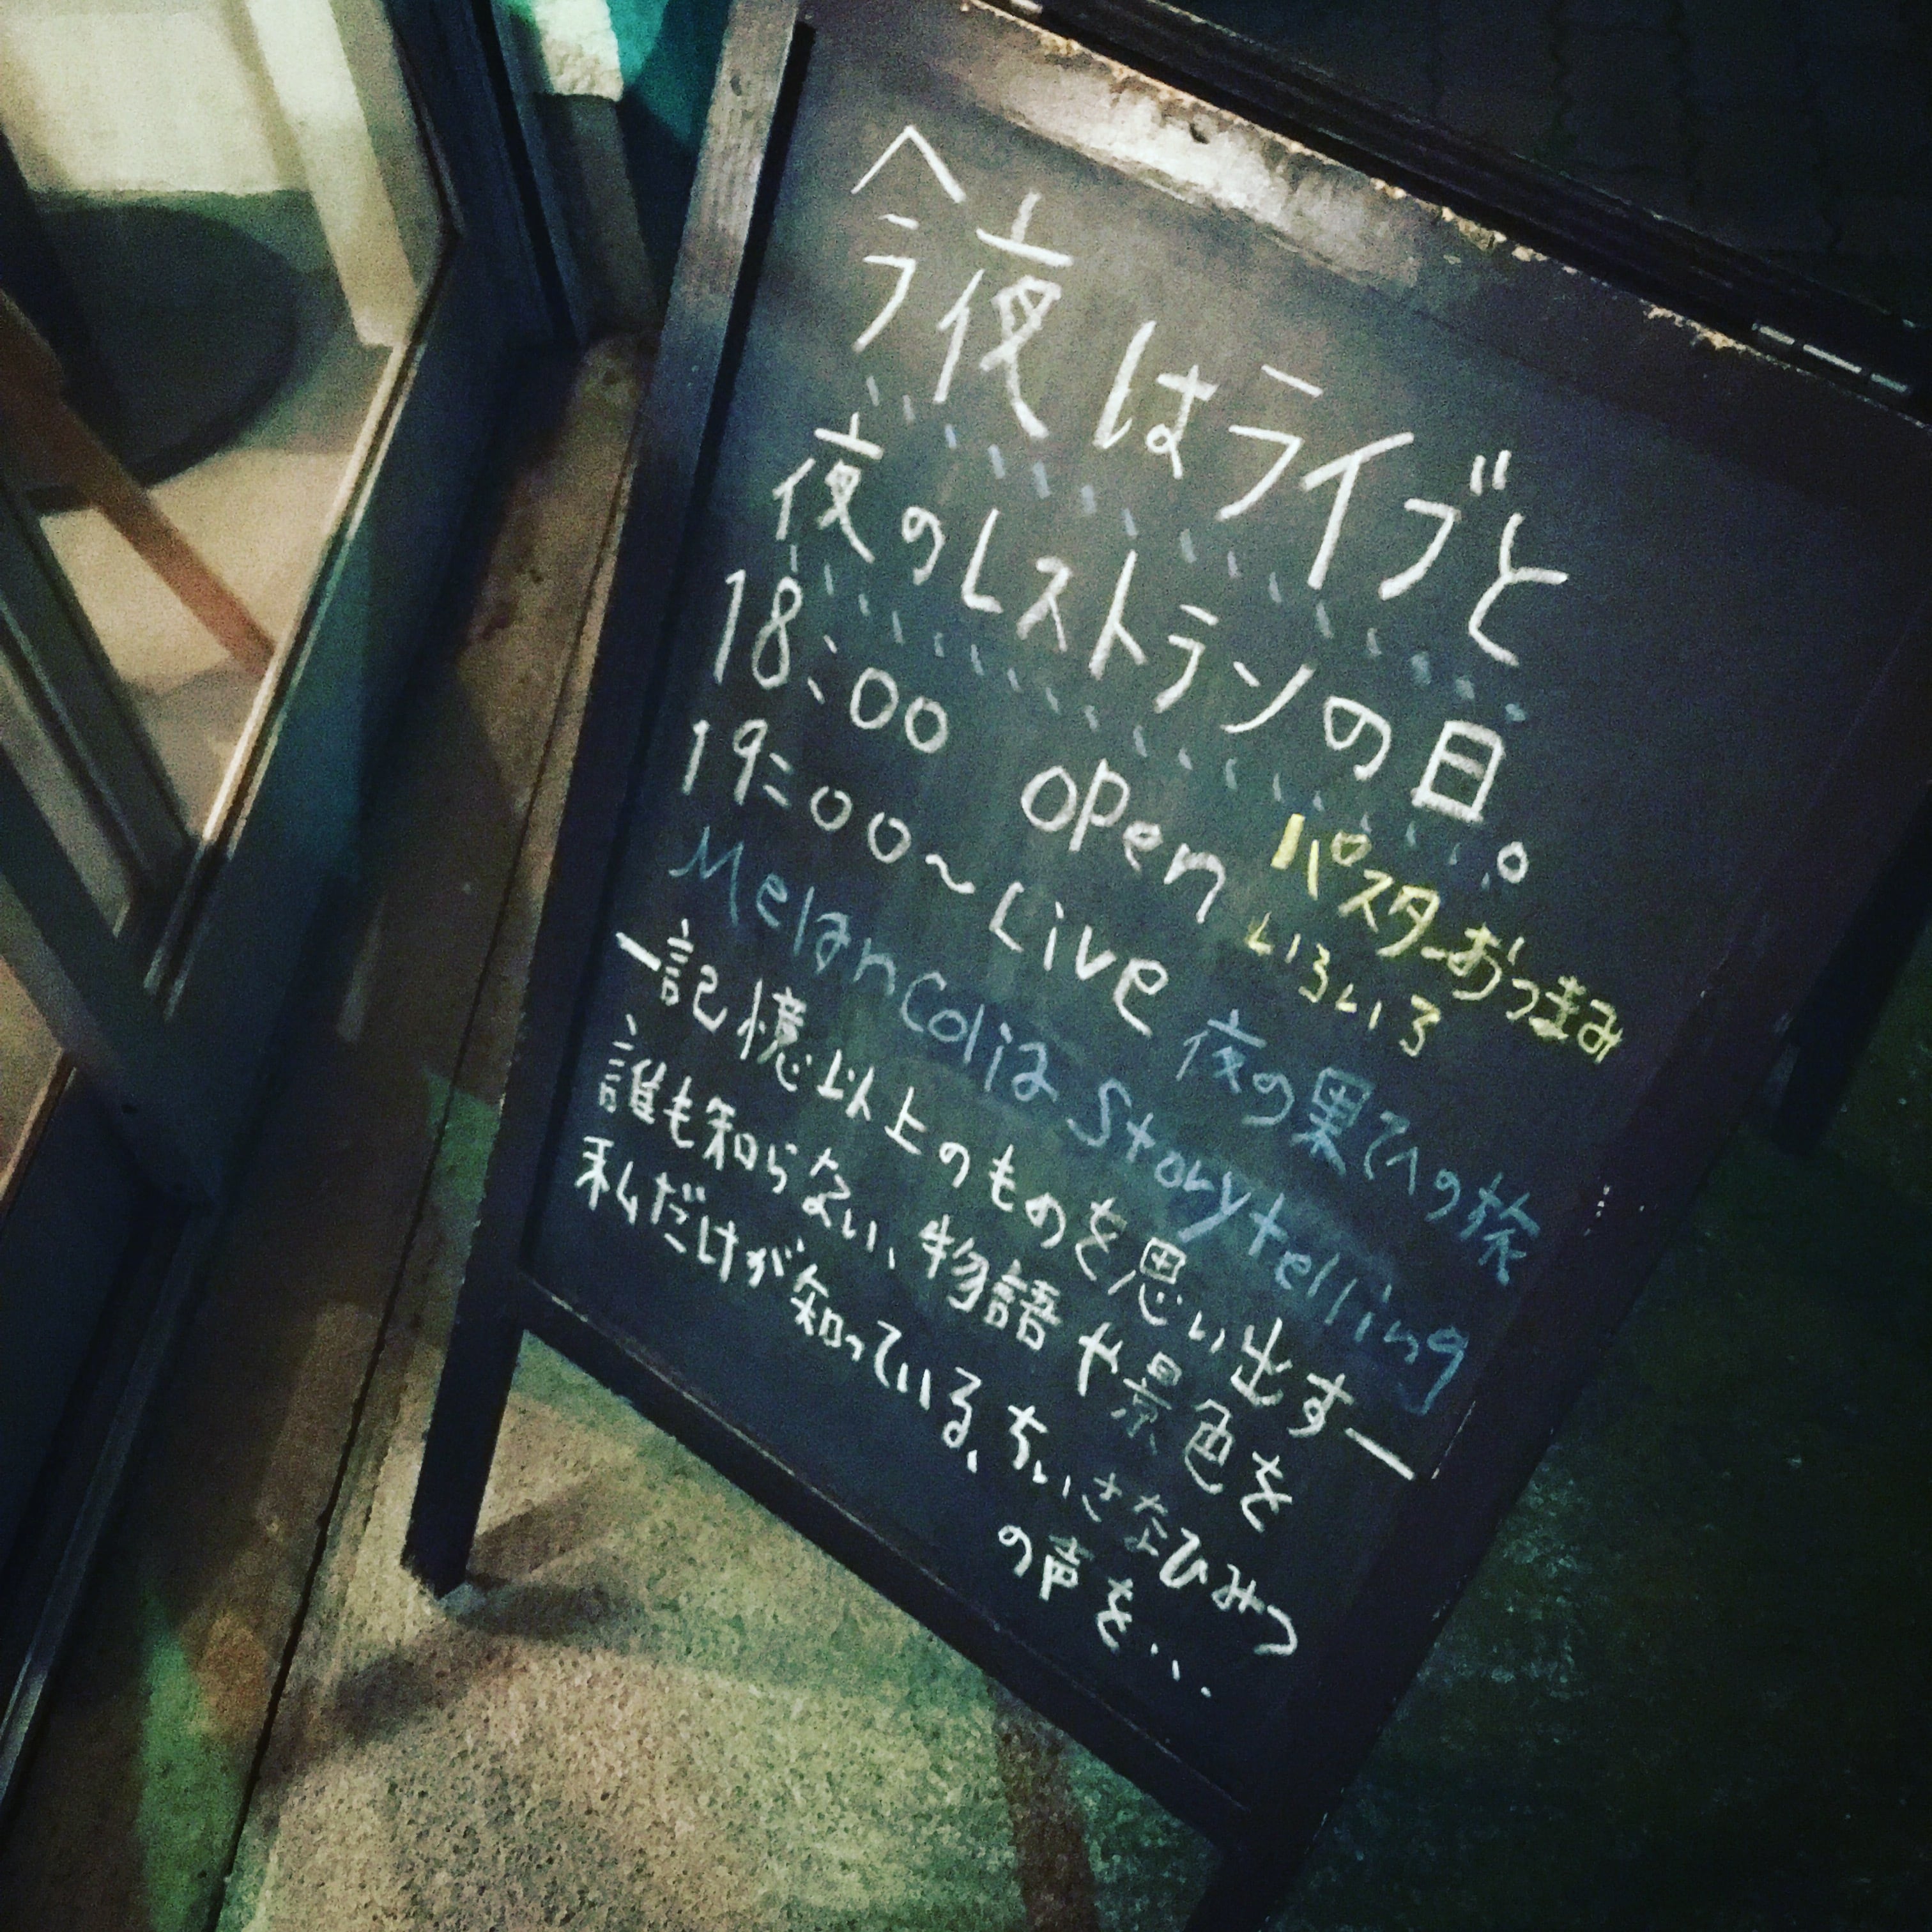 今夜はライブと
夜のレストランの日。
18:00 open パスターおつまみ
いろいろ
19:00〜Live 夜の果てへの旅
Melancolia Storytelling
ー記憶以上のものを思い出すー
誰も知らない、物語や景色を
私だけが知っている、ちいさなひみつ
の声を...